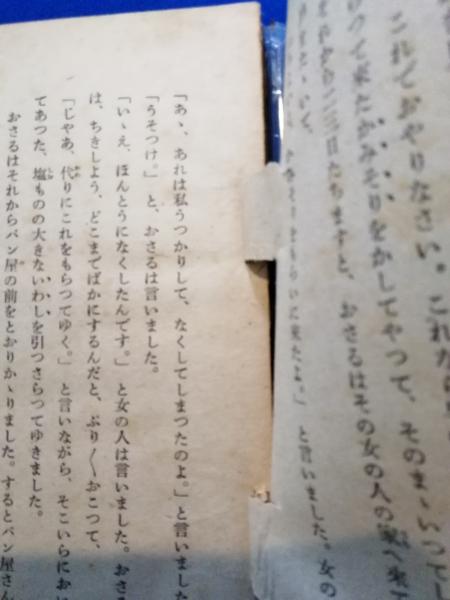 これでおやりなさい。これなら
けつて来たかみそりをかしてやつて、そのまゝいつてし
それから二三日たちますと、おさるはその女の人の家へ来て
もらいに来たよ。」と言いました。女の
「あゝ、あれは私うつかりして、なくしてしまつたのよ。」と言いました
「うそつけ。」と、おさるは言いました。
「いゝえ、ほんとうになくしたんです。」と女の人は言いました。おさる
は、ちきしよう、どこまでばかにするんだと、ぷり〳〵おこつて、
「じやあ、代りにこれをもらつてゆく。」と言いながら、そこいらにおい
てあつた、塩ものの大きないわしを引つさらつてゆきました。
おさるはそれからパン屋の前をとおりかゝりました。するとパン屋さん